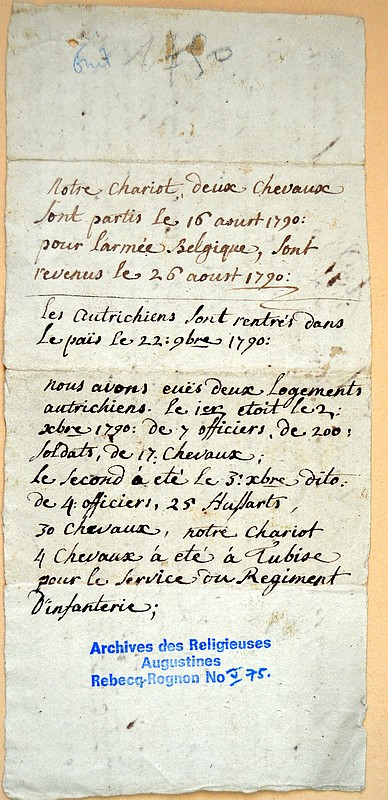 1790
notre chariot, deux chevaux
sont partis le 16 aoust 1790:
pour l'armée Belgique, sont
revenus le 26 aoust 1790:
les autrichiens sont rentrés dans
le païs le 22: 9bre 1790:
nous avons euës deux Logements
autrichiens. le 1er etoit le 2:
xbre 1790: de 7 officiers, de 200:
soldats, de 17. chevaux;
le second à eté le 3: xbre dito:
de 4 officiers, 25 Hussarts,
30 chevaux, notre chariot
4 chevaux à eté à Tubise
pour le service du Regiment
D'infanterie;
Archives des Religieuses
Augustines
Rebecq-Rognon No V 75.